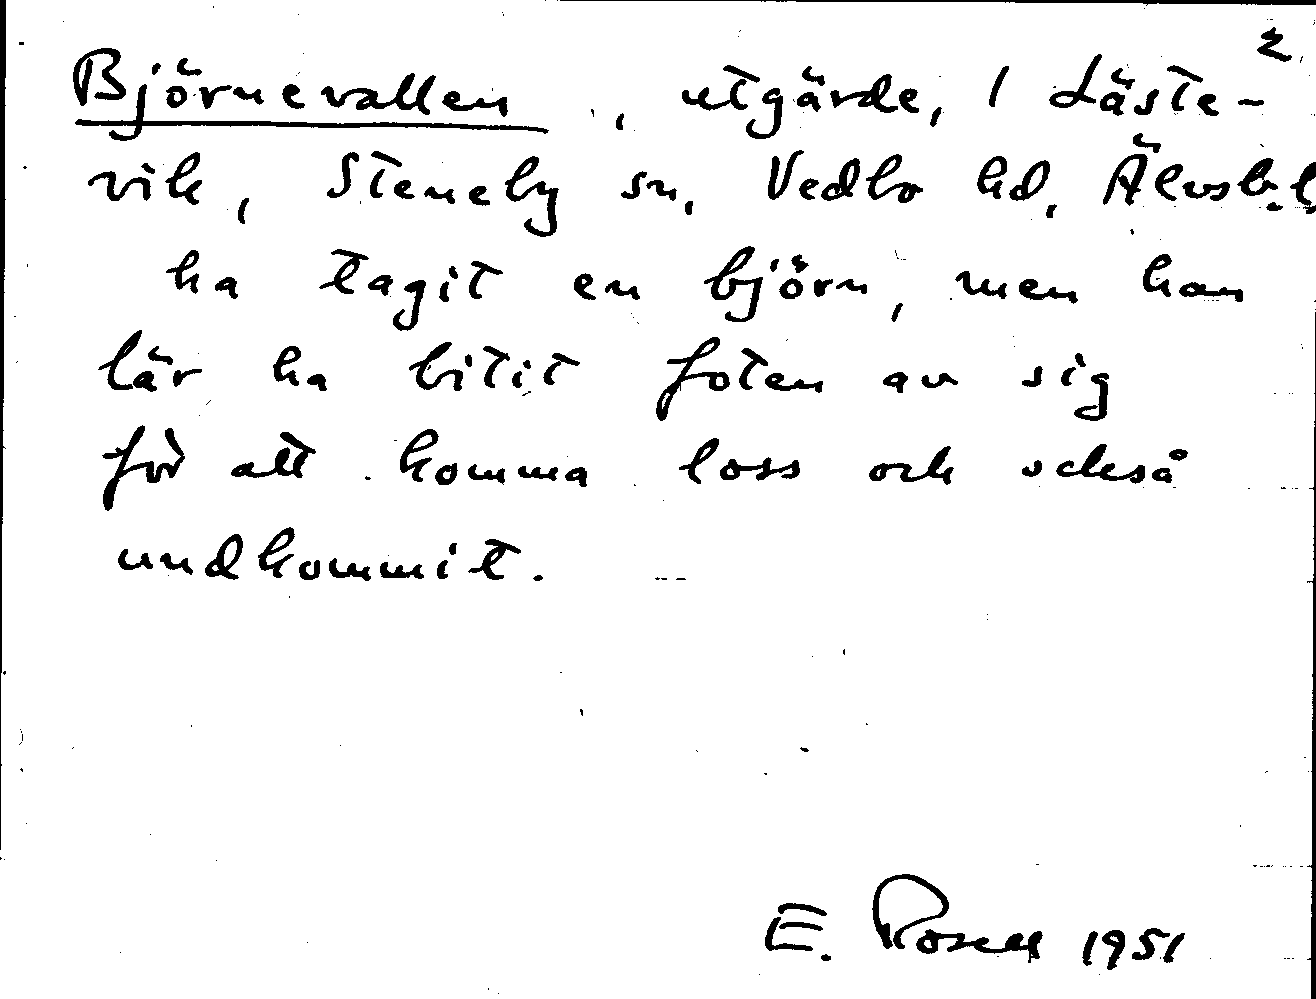 2
Björnevallen, utgärde, 1 Läste-
vik, Steneby sn, Vedbo hd, Älvsb. l
ha tagit en björn, men han
lär ha bitit foten av sig
för att komma loss och också
undkommit.
E. Rosell 1951